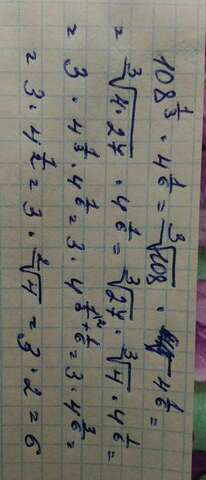 108^{\frac{1}{3}} · 4^{\frac{1}{6}} = \sqrt[3]{108} · 4^{\frac{1}{6}} =
= \sqrt[3]{4·27} · 4^{\frac{1}{6}} = \sqrt[3]{27} · \sqrt[3]{4} · 4^{\frac{1}{6}} =
= 3 · 4^{\frac{1}{3}} · 4^{\frac{1}{6}} = 3 · 4^{\frac{1}{3}^{\backslash 2} + \frac{1}{6}} = 3 · 4^{\frac{3}{6}} =
= 3 · 4^{\frac{1}{2}} = 3 · \sqrt[2]{4} = 3 · 2 = 6